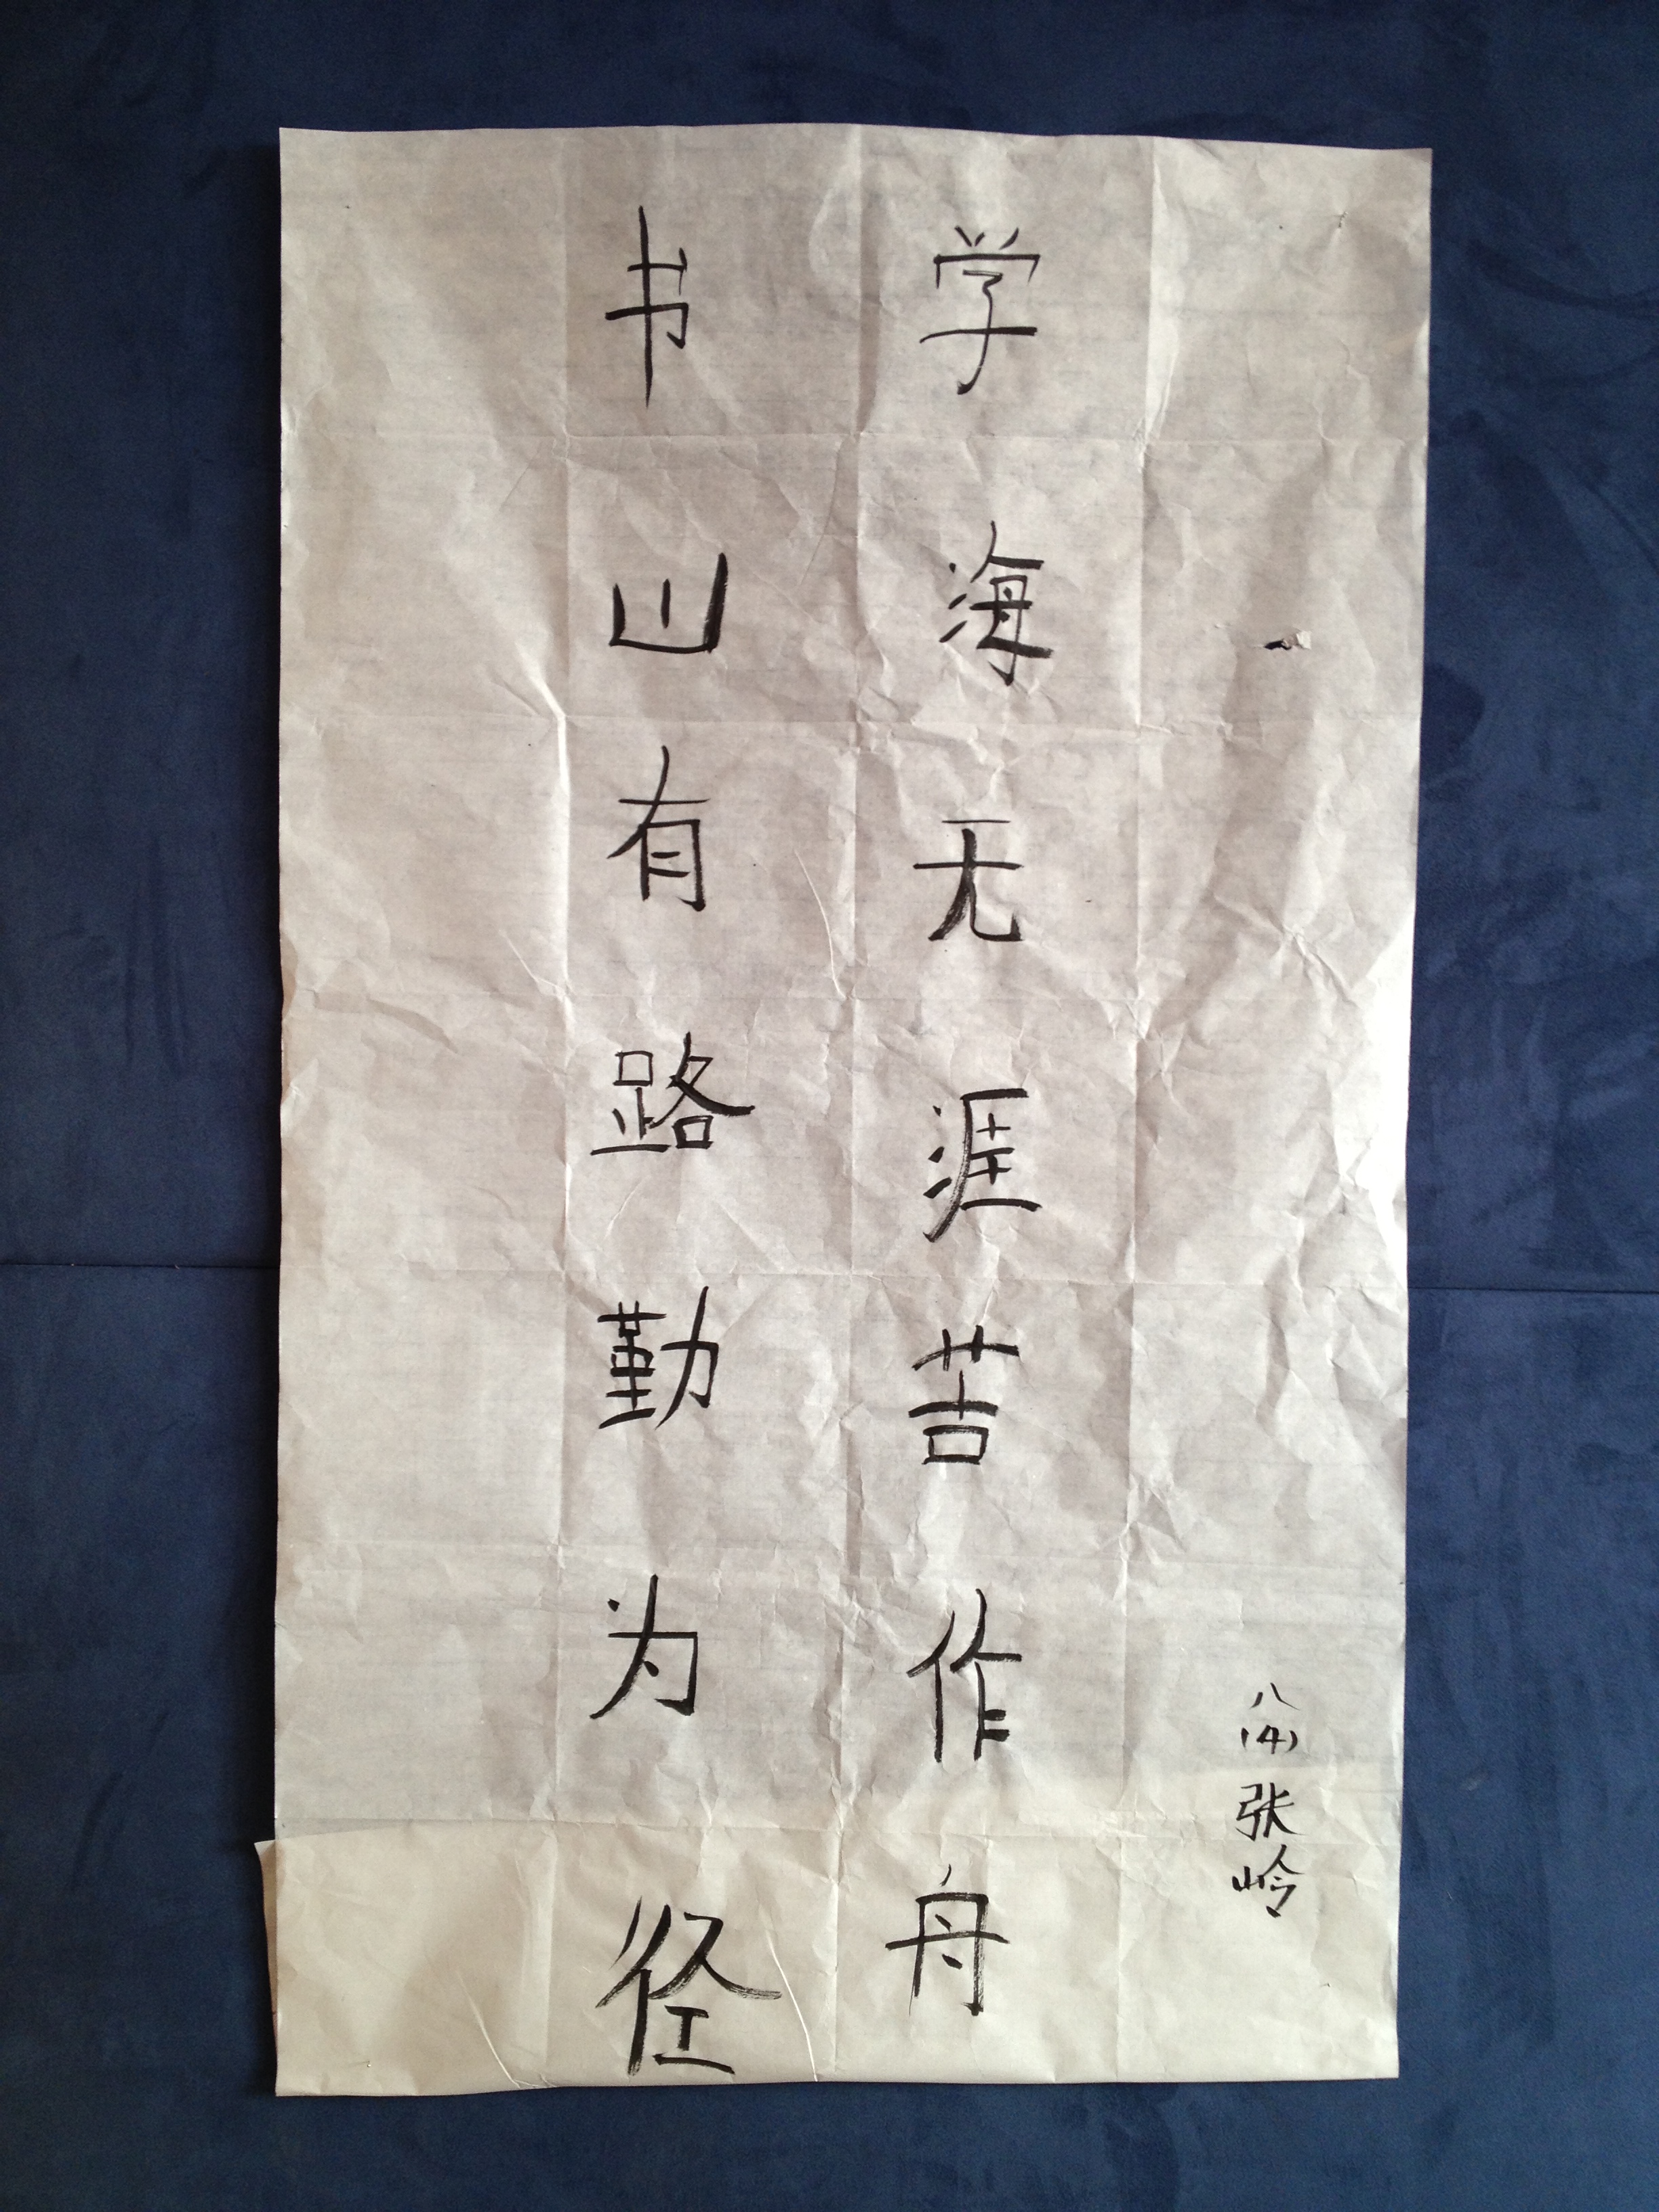 书山有路勤为径
学海无涯苦作舟
八(4)张岭